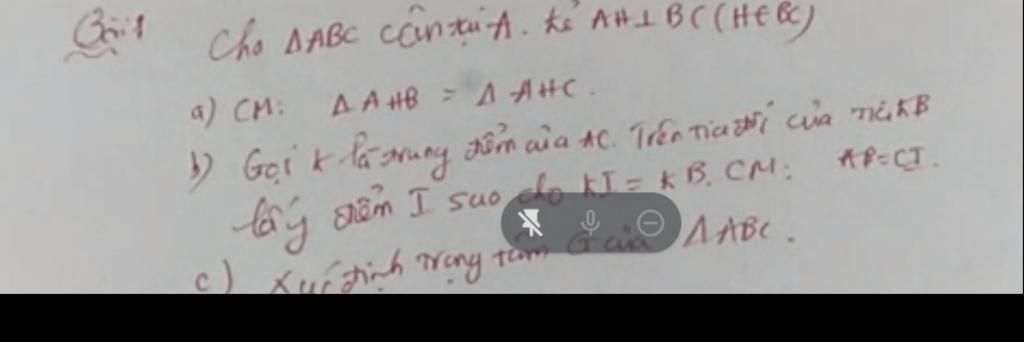 Bài 1 Cho ΔABC cân tại A. Kẻ AH ⊥ BC (H ∈ BC)
a) CM: Δ AHB = Δ AHC.
b) Gọi K là trung điểm của AC. Trên tia đối của tia KB
lấy điểm I sao cho KI = KB. CM: AB = CI.
c) Xác định trọng tâm G của ΔABC.